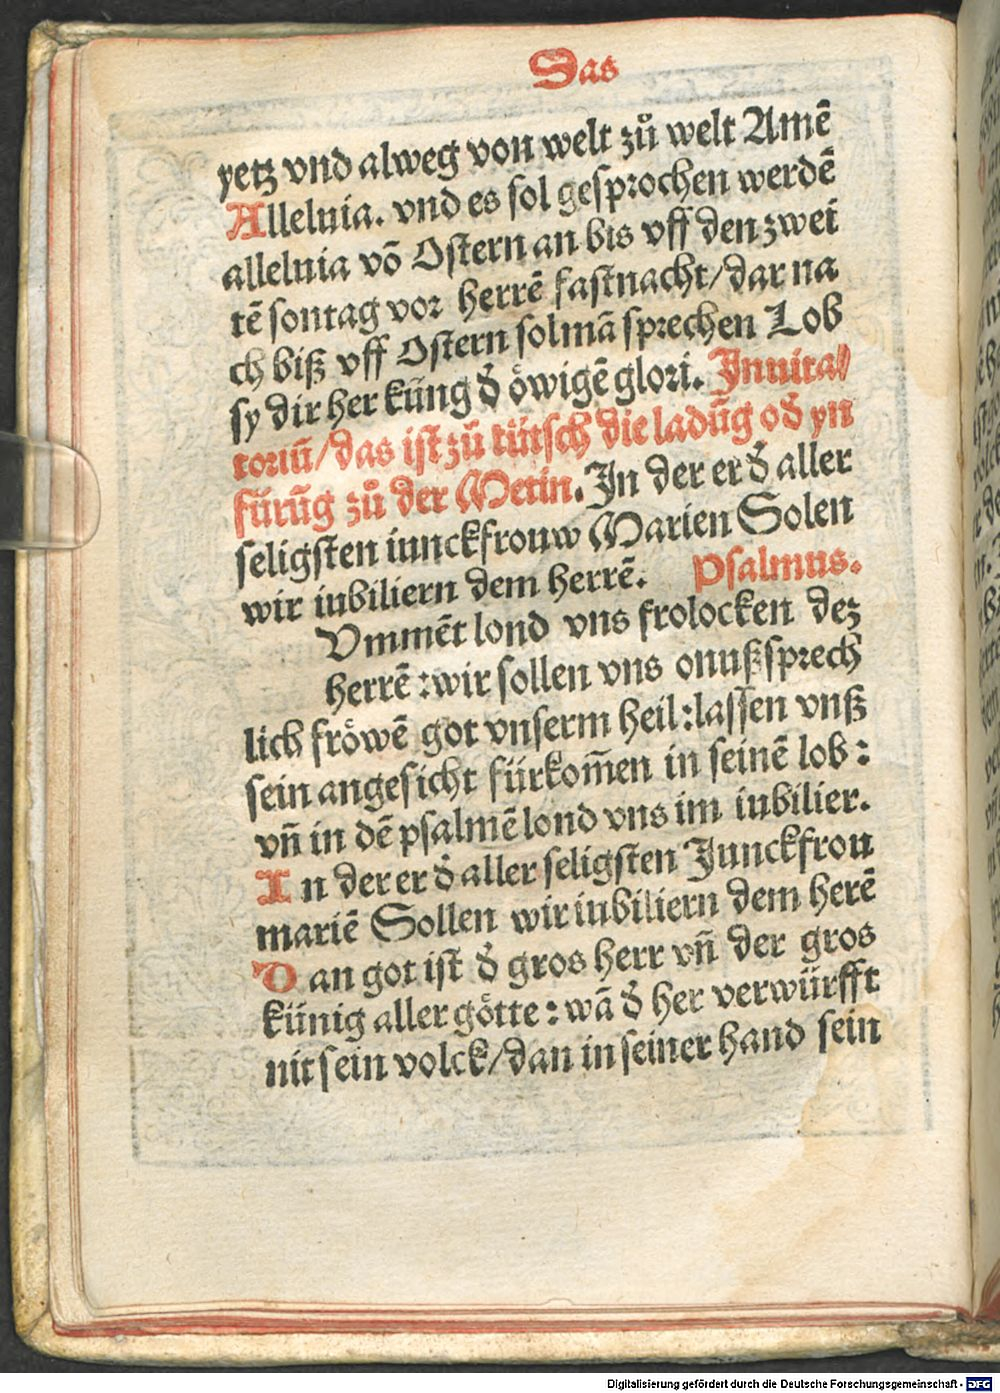 Das
yetz vnd alweg von welt zů welt Amē
Alleluia. vnd es sol gesprochen werdē
alleluia vō Ostern an bis vff den zwei
tē sontag vor herrē fastnacht/dar na
ch biß vff Ostern solmā sprechen Lob
sy dir her küng d̄ öwigē glori. Inuita/
toriū/das ist zů tütsch die ladūg od̄ yn
fürūg zů der Metin. In der er d̄ aller
seligsten iunckfrouw Marien Solen
wir iubiliern dem herrē. Psalmus.
Vmmēt lond vns frolocken dez
herrē :wir sollen vns onußsprech
lich fröwē got vnserm heil:lassen vnß
sein angesicht fürkom̄en in seinē lob :
vn̄ in dē psalmē lond vns im iubilier.
In der er d̄ aller seligsten Junckfrou
mariē Sollen wir iubiliern dem herē
Dan got ist d̄ gros herr vn̄ der gros
künig aller götte : wā d̄ her verwürfft
nit sein volck/dan in seiner hand sein
Digitalisierung gefördert durch die Deutsche Forschungsgemeinschaft - DFG